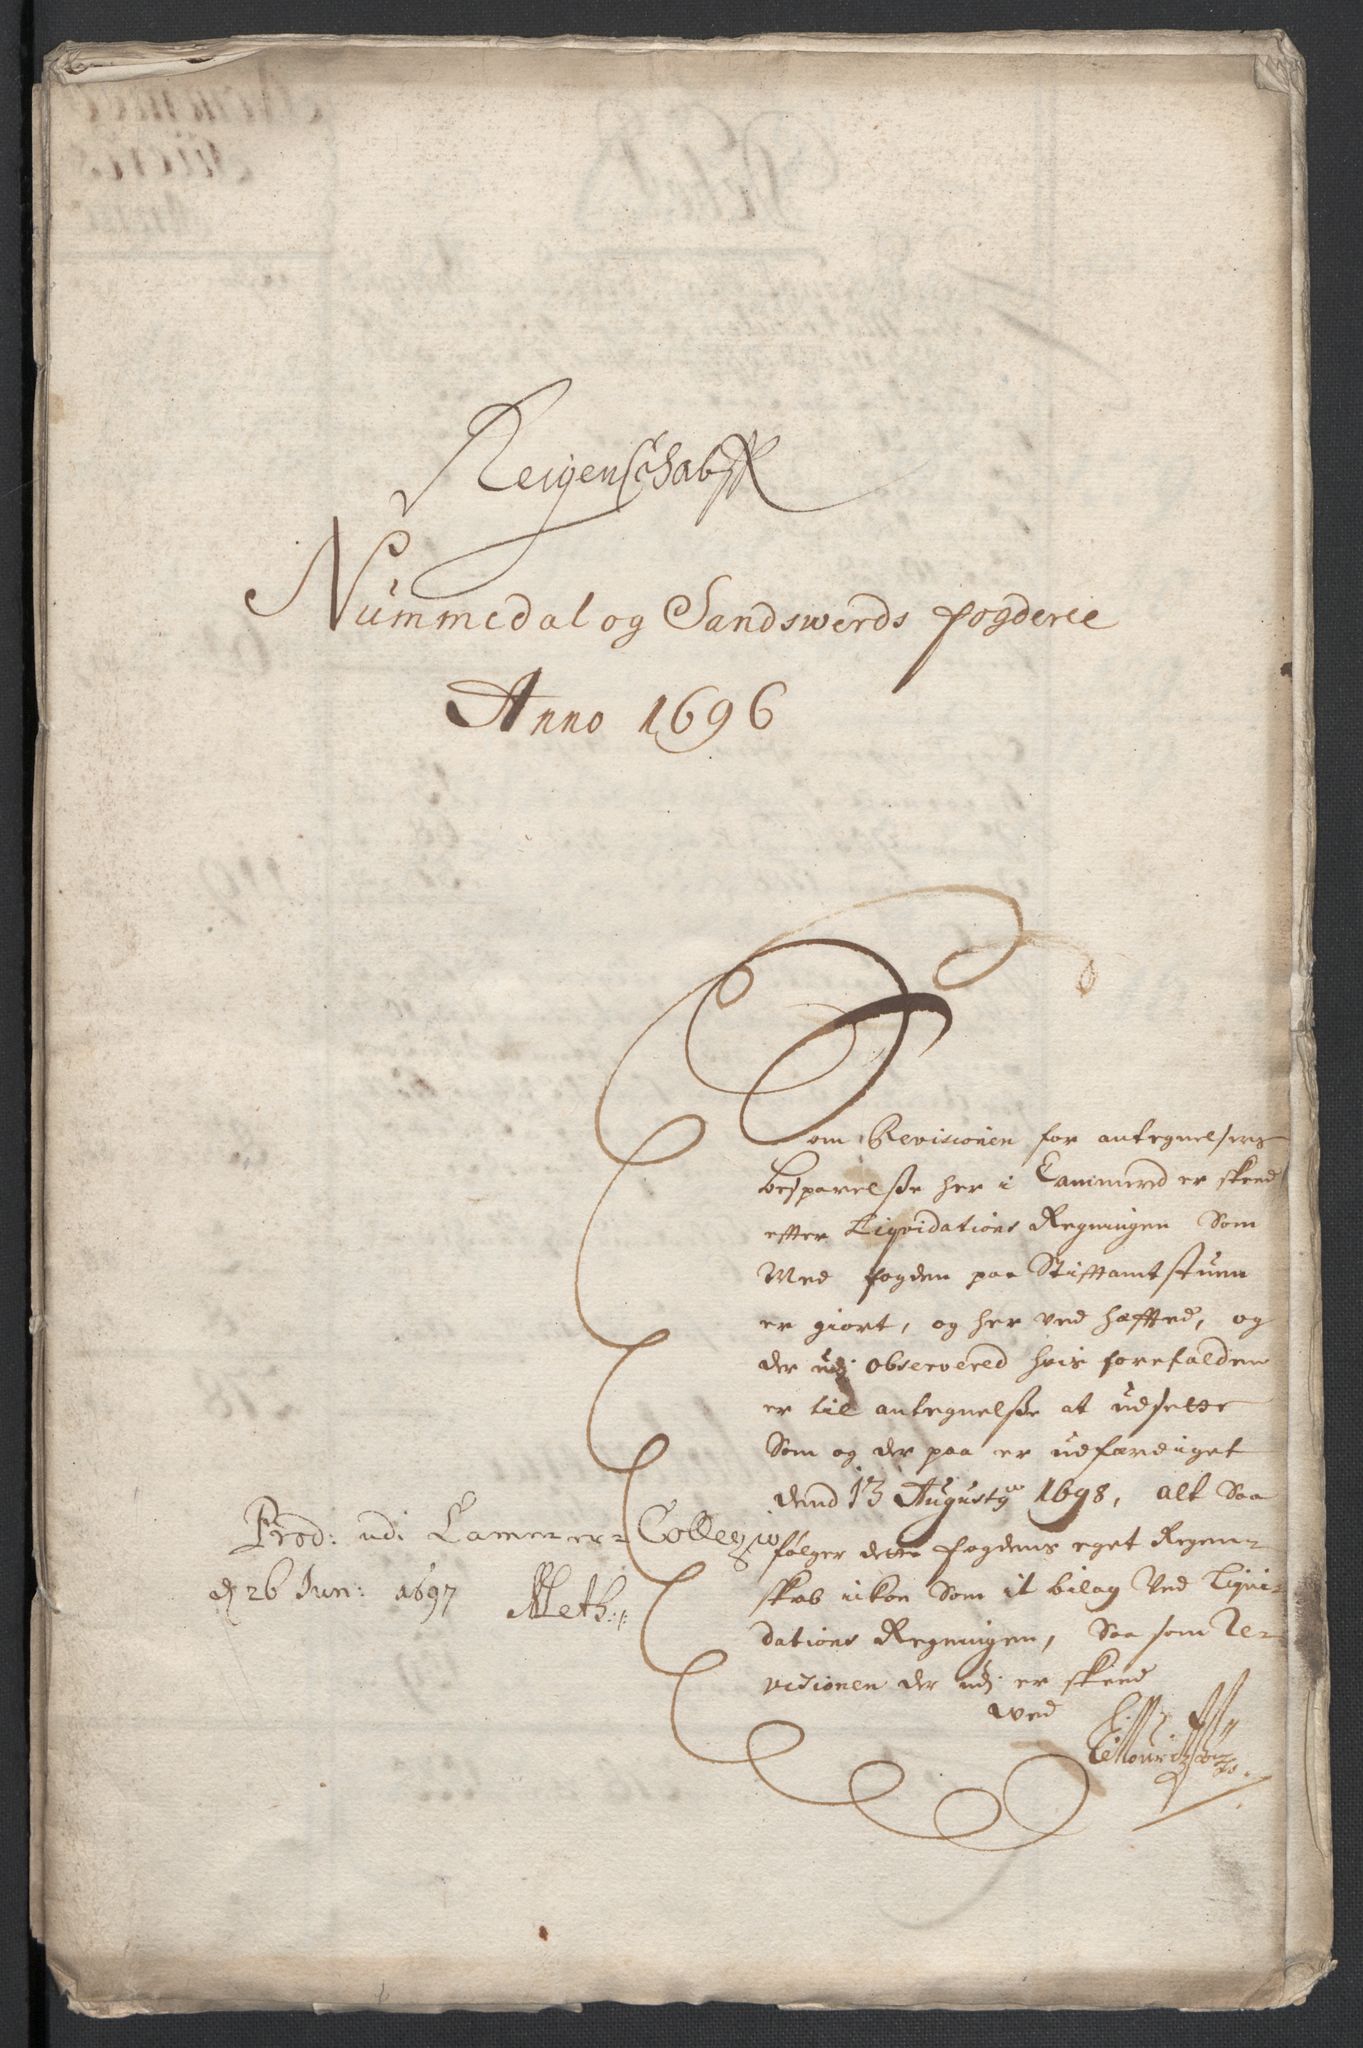 Reigenschabff
Nummedal og Sandswerds fogderie
Anno 1696
Som Revisionen for antegnelsens
besparelsse her i Cammered er skeed
efter Liqvidations Regningen Som
Med fogden paa Stifftamtstuen
er giort, og her ved hæffted, og
der udj observered hvis forefalden
er til antegnelsse at udsette
Som og der paa er udfærdiget
dend 13 Augusty 1698, alt Saa
følger dette fogdens eget Regen-
skab ickon Som it bilag Ved Liqvi-
dations Regningen, Saa som Re-
visionen der udj er skeed
Wed
Prod: udi Cammer-Collegio
d 26 Jun: 1697